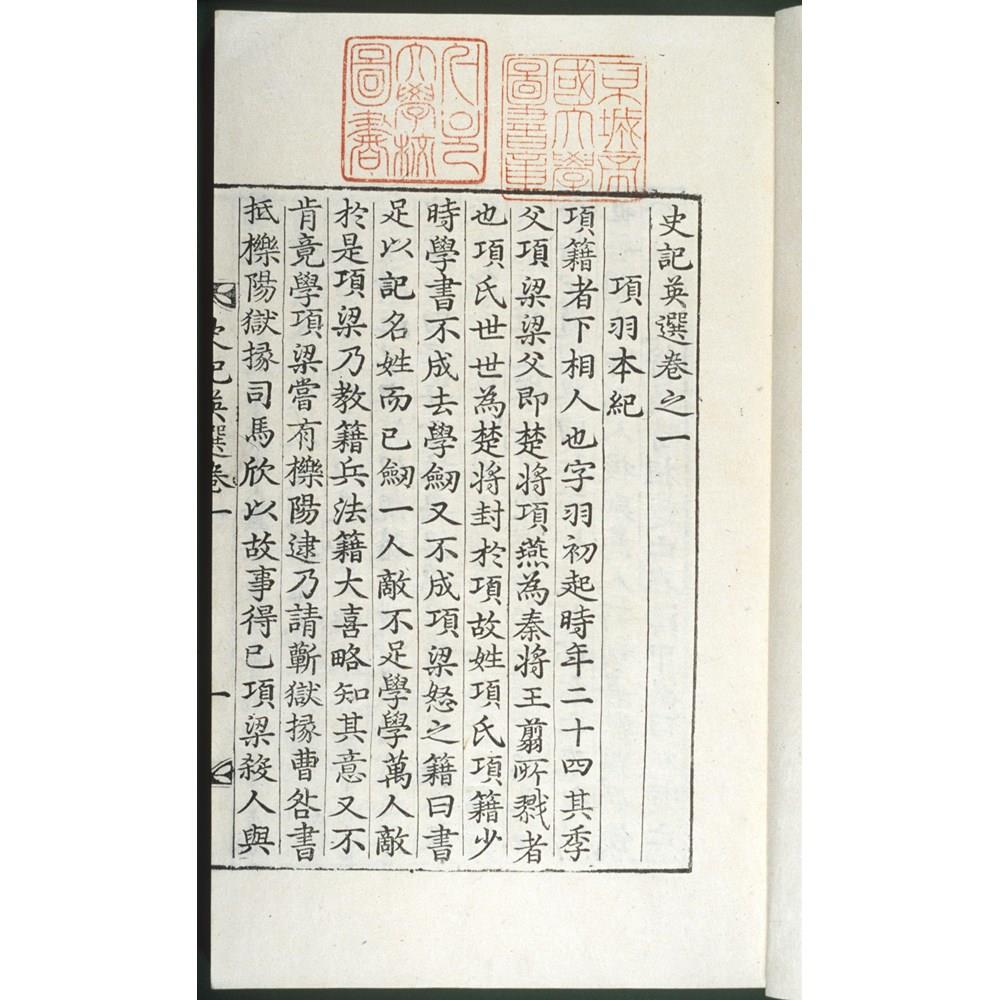 京城帝
國大學
圖書章
서울
大學校
圖書
史記英選卷之一
項羽本紀
項籍者下相人也字羽初起時年二十四其季
父項梁梁父即楚將項燕為秦將王翦所戮者
也項氏世世為楚將封於項故姓項氏項籍少
時學書不成去學劒又不成項梁怒之籍曰書
足以記名姓而已劒一人敵不足學學萬人敵
於是項梁乃教籍兵法籍大喜略知其意又不
肯竟學項梁嘗有櫟陽逮乃請蘄獄掾曹咎書
抵櫟陽獄掾司馬欣以故事得已項梁殺人與
史記英選卷一
一